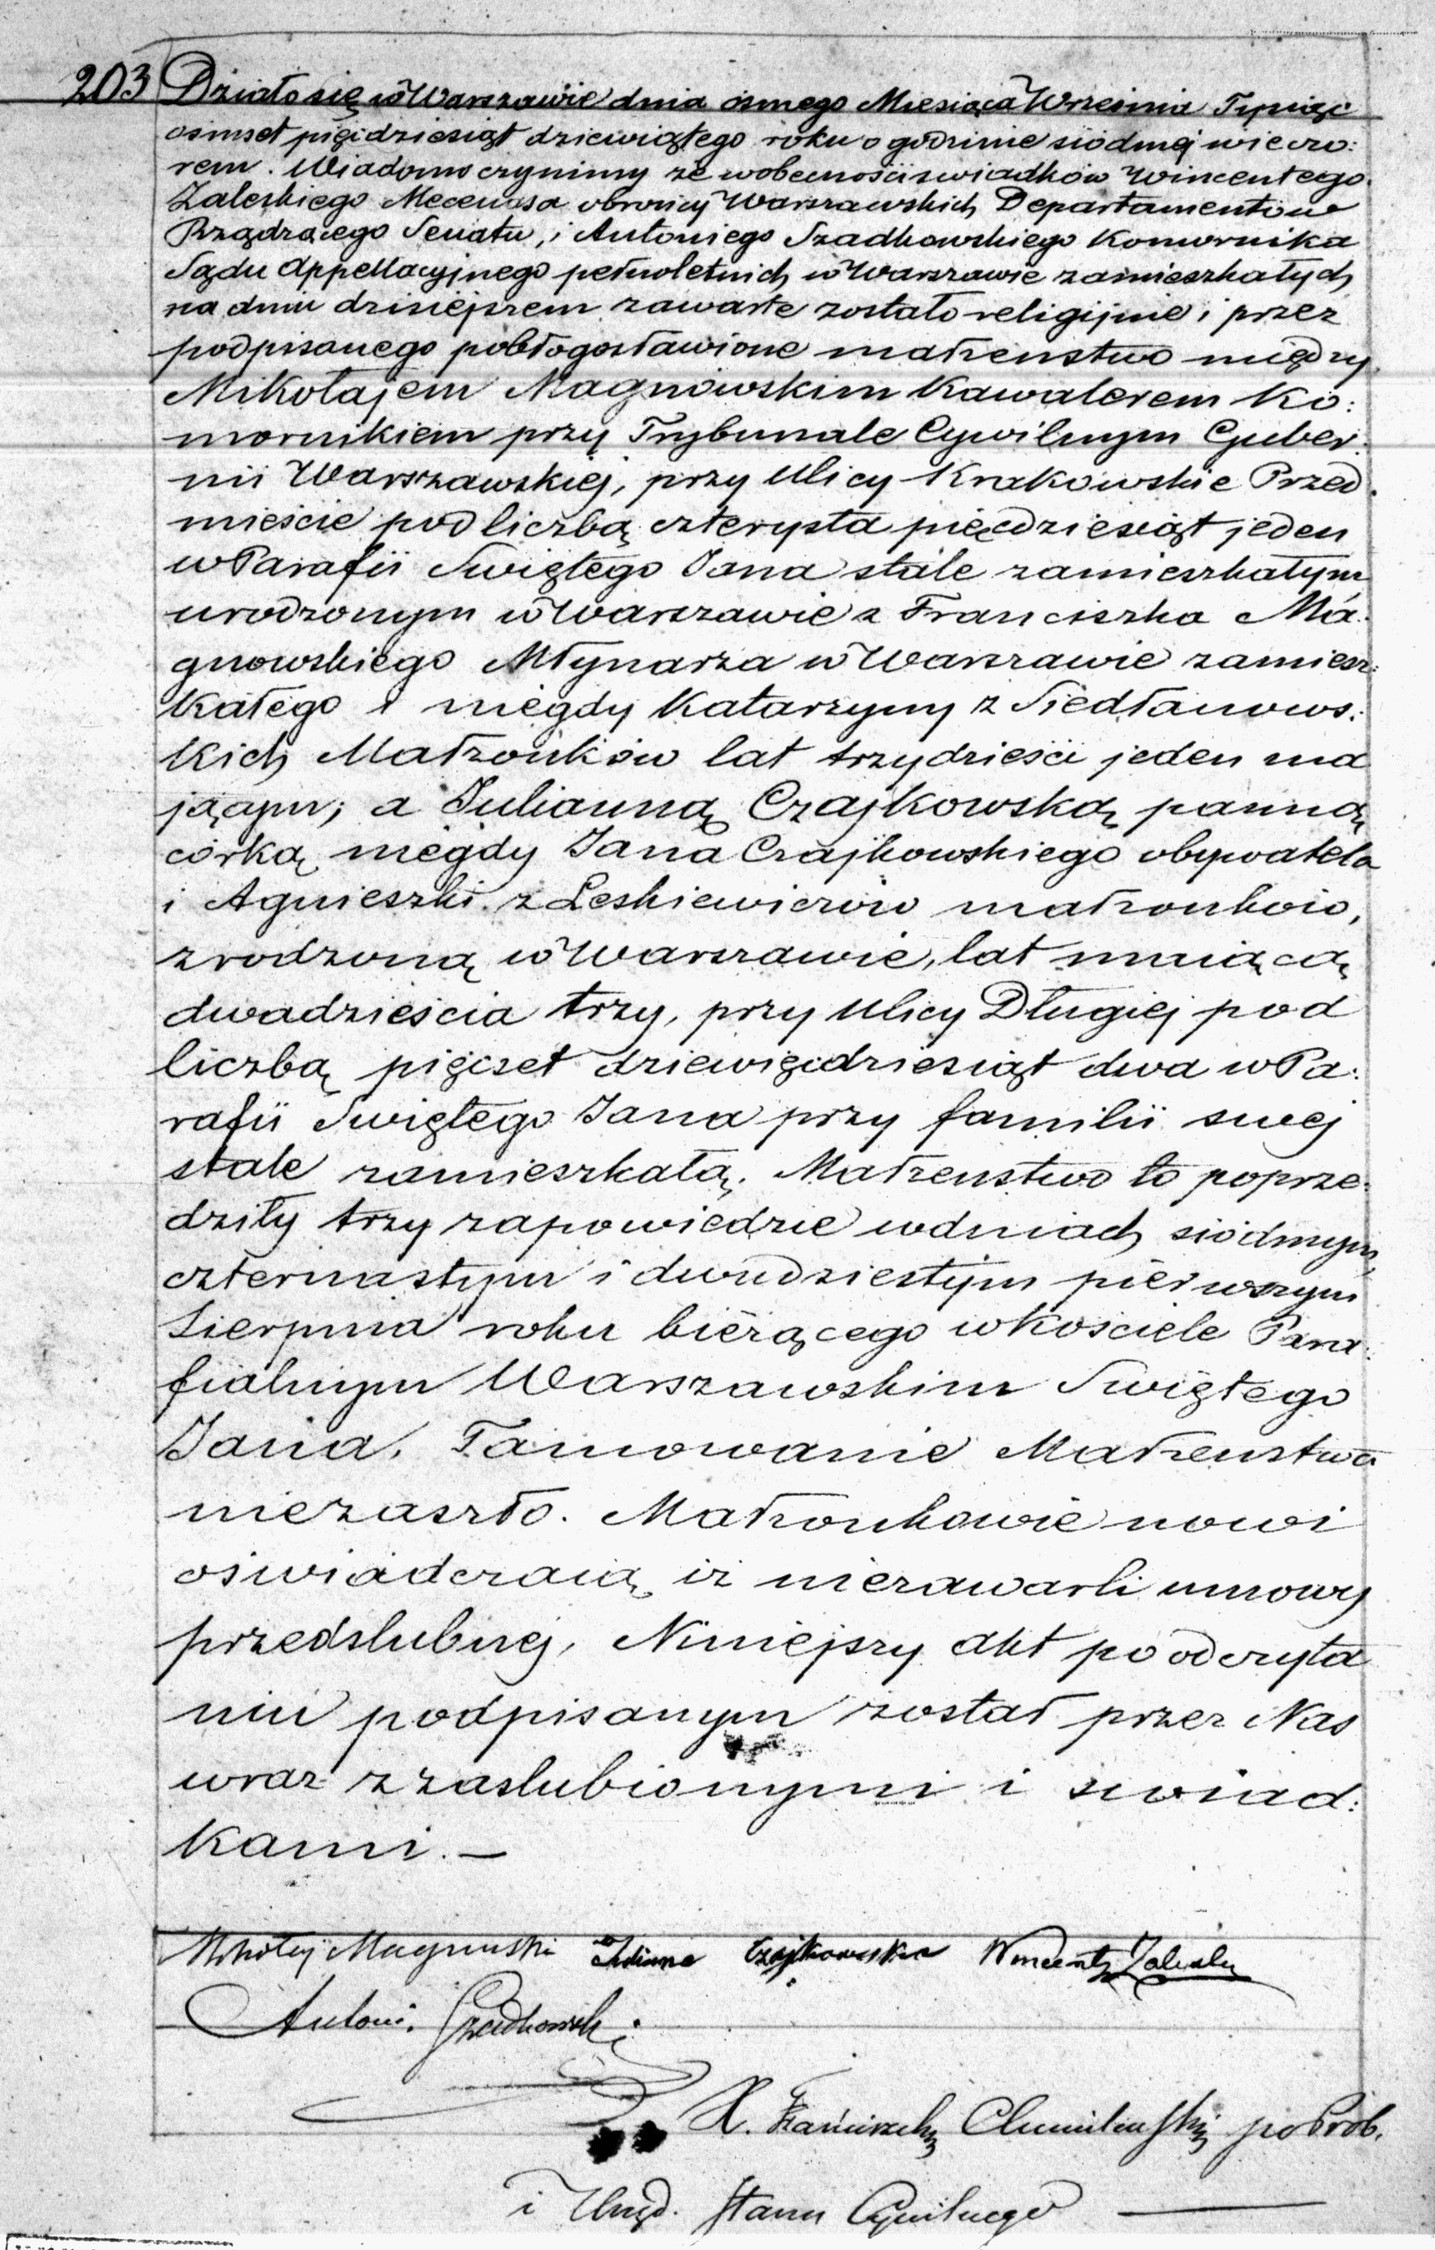 203 Działo się w Warszawie dnia osmego Miesiąca Września Tysiąc
osmset pięćdziesiąt dziewiątego roku o godzinie siodmej wieczo:
rem. Wiadomo czynimy że w obecności swiadków Wincentego
Zaleskiego Mecenasa obrońcy Warszawskich Departamentów
Rządzącego Senatu, i Antoniego Szadkowskiego Komornika
Sądu Appellacyjnego pełnoletnich w Warszawie zamieszkałych
na dniu dzisiejszem zawarte zostało religijnie i przez
podpisanego pobłogosławione małżenstwo między
Mikołajem Magnowskim Kawalerem Ko:
mornikiem przy Trybunale Cywilnym Guber:
nii Warszawskiej, przy Ulicy Krakowskie Przed
mieście pod liczbą czterysta pięćdziesiąt jeden
w Parafii Swiętego Jana stale zamieszkałym
urodzonym w Warszawie z Franciszka Ma:
gnowskiego Młynarza w Warszawie zamiesz:
kałego i niegdy Katarzyny z Siedlanows:
kich Małżonków lat trzydzieści jeden ma
jącym; a Julianną Czajkowską panną
córką niegdy Jana Czajkowskiego obywatela
i Agnieszki z Leskiewiczów małżonków,
zrodzoną w Warszawie, lat maiącą
dwadzieścia trzy, przy Ulicy Długiej pod
liczbą pięćset dziewięćdziesiąt dwa w Pa:
rafii Swiętego Jana przy familii swej
stale zamieszkałą. Małżenstwo to poprze:
dziły trzy zapowiedzie w dniach siódmym,
czternastym i dwudziestym pierwszym
Sierpnia roku bieżącego w Kosciele Para:
fialnym Warszawskim Swiętego
Jana. Tamowanie Małżenstwa
niezaszło. Małżonkowie nowi
oświadczaią iż niezawarli umowy
przedslubnej, Niniejszy Akt po odczyta
niu podpisanym został przez Nas
wraz z zaslubionymi i swiad:
kami. —
Mikołaj Magnuski Julianna Czajkowska Wincenty Zaleski
Antoni Szadkowski
X. Franciszek pobProb.
i Urzęd. Stanu Cywilnego —